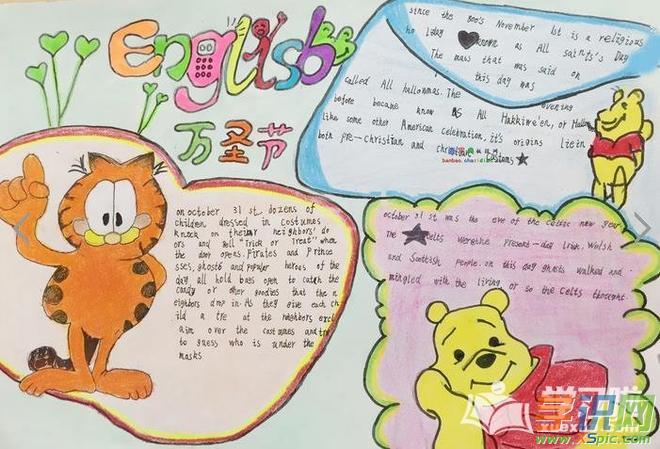 English
万圣节
since the 800's November 1st is a religious
ho liday known as All saints's Day
The mass that was said on
this day was
called All hallonmas. The evening
before became know as All Hakkiwe'en, or Hallow
like some other American celebration, it's origins liein
both pre-christian and
on october 31 st, dozens of
children dressed in costumes
knock on their neighbors' do
ors and "Trick or Treat" when
the door opens. Pirates and Prince
sses, ghosts and popular heroes of the
day all hold bags open to catch the
candy or other goodies that the n
eighbors drop in. As they give each ch
ild a tre at the neighbors excl
aim over the costumes and try
to guess who is under the
masks
october 31 st was the eve of the celtic new year
The elts werethe present-day Irish, Welsh
and Scottish People. on this day ghosts walked and
mingled with the living or so the celts thought.
学识网
www.xSpic.com